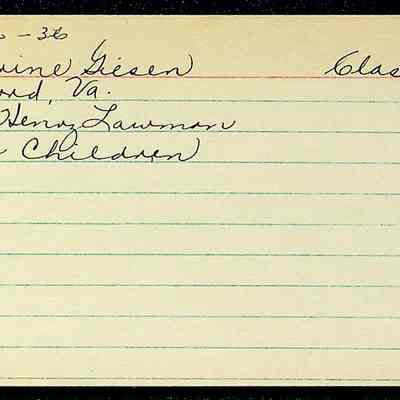 - 36
rine Giesen Clas
ord, Va.
Henry Lawman
Children